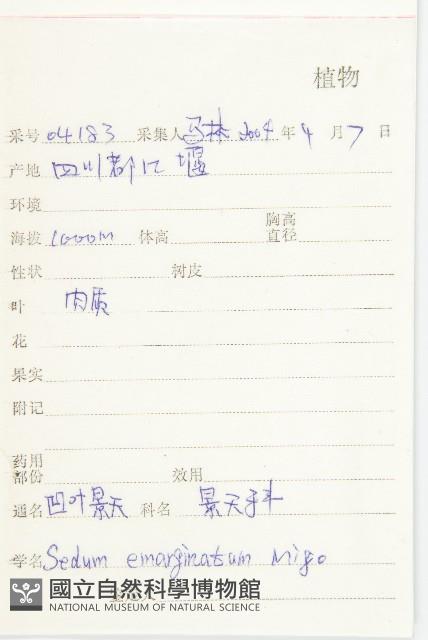 植物
采号 04183 采集人 马林 2004 年 4 月 7 日
产地 四川都江堰
环境
海拔 1000M 体高 胸高直径
性状 树皮
叶 肉质
花
果实
附记
药用部份 效用
通名 凹叶景天 科名 景天科
学名 Sedum emarginatum Migo
國立自然科學博物館
NATIONAL MUSEUM OF NATURAL SCIENCE